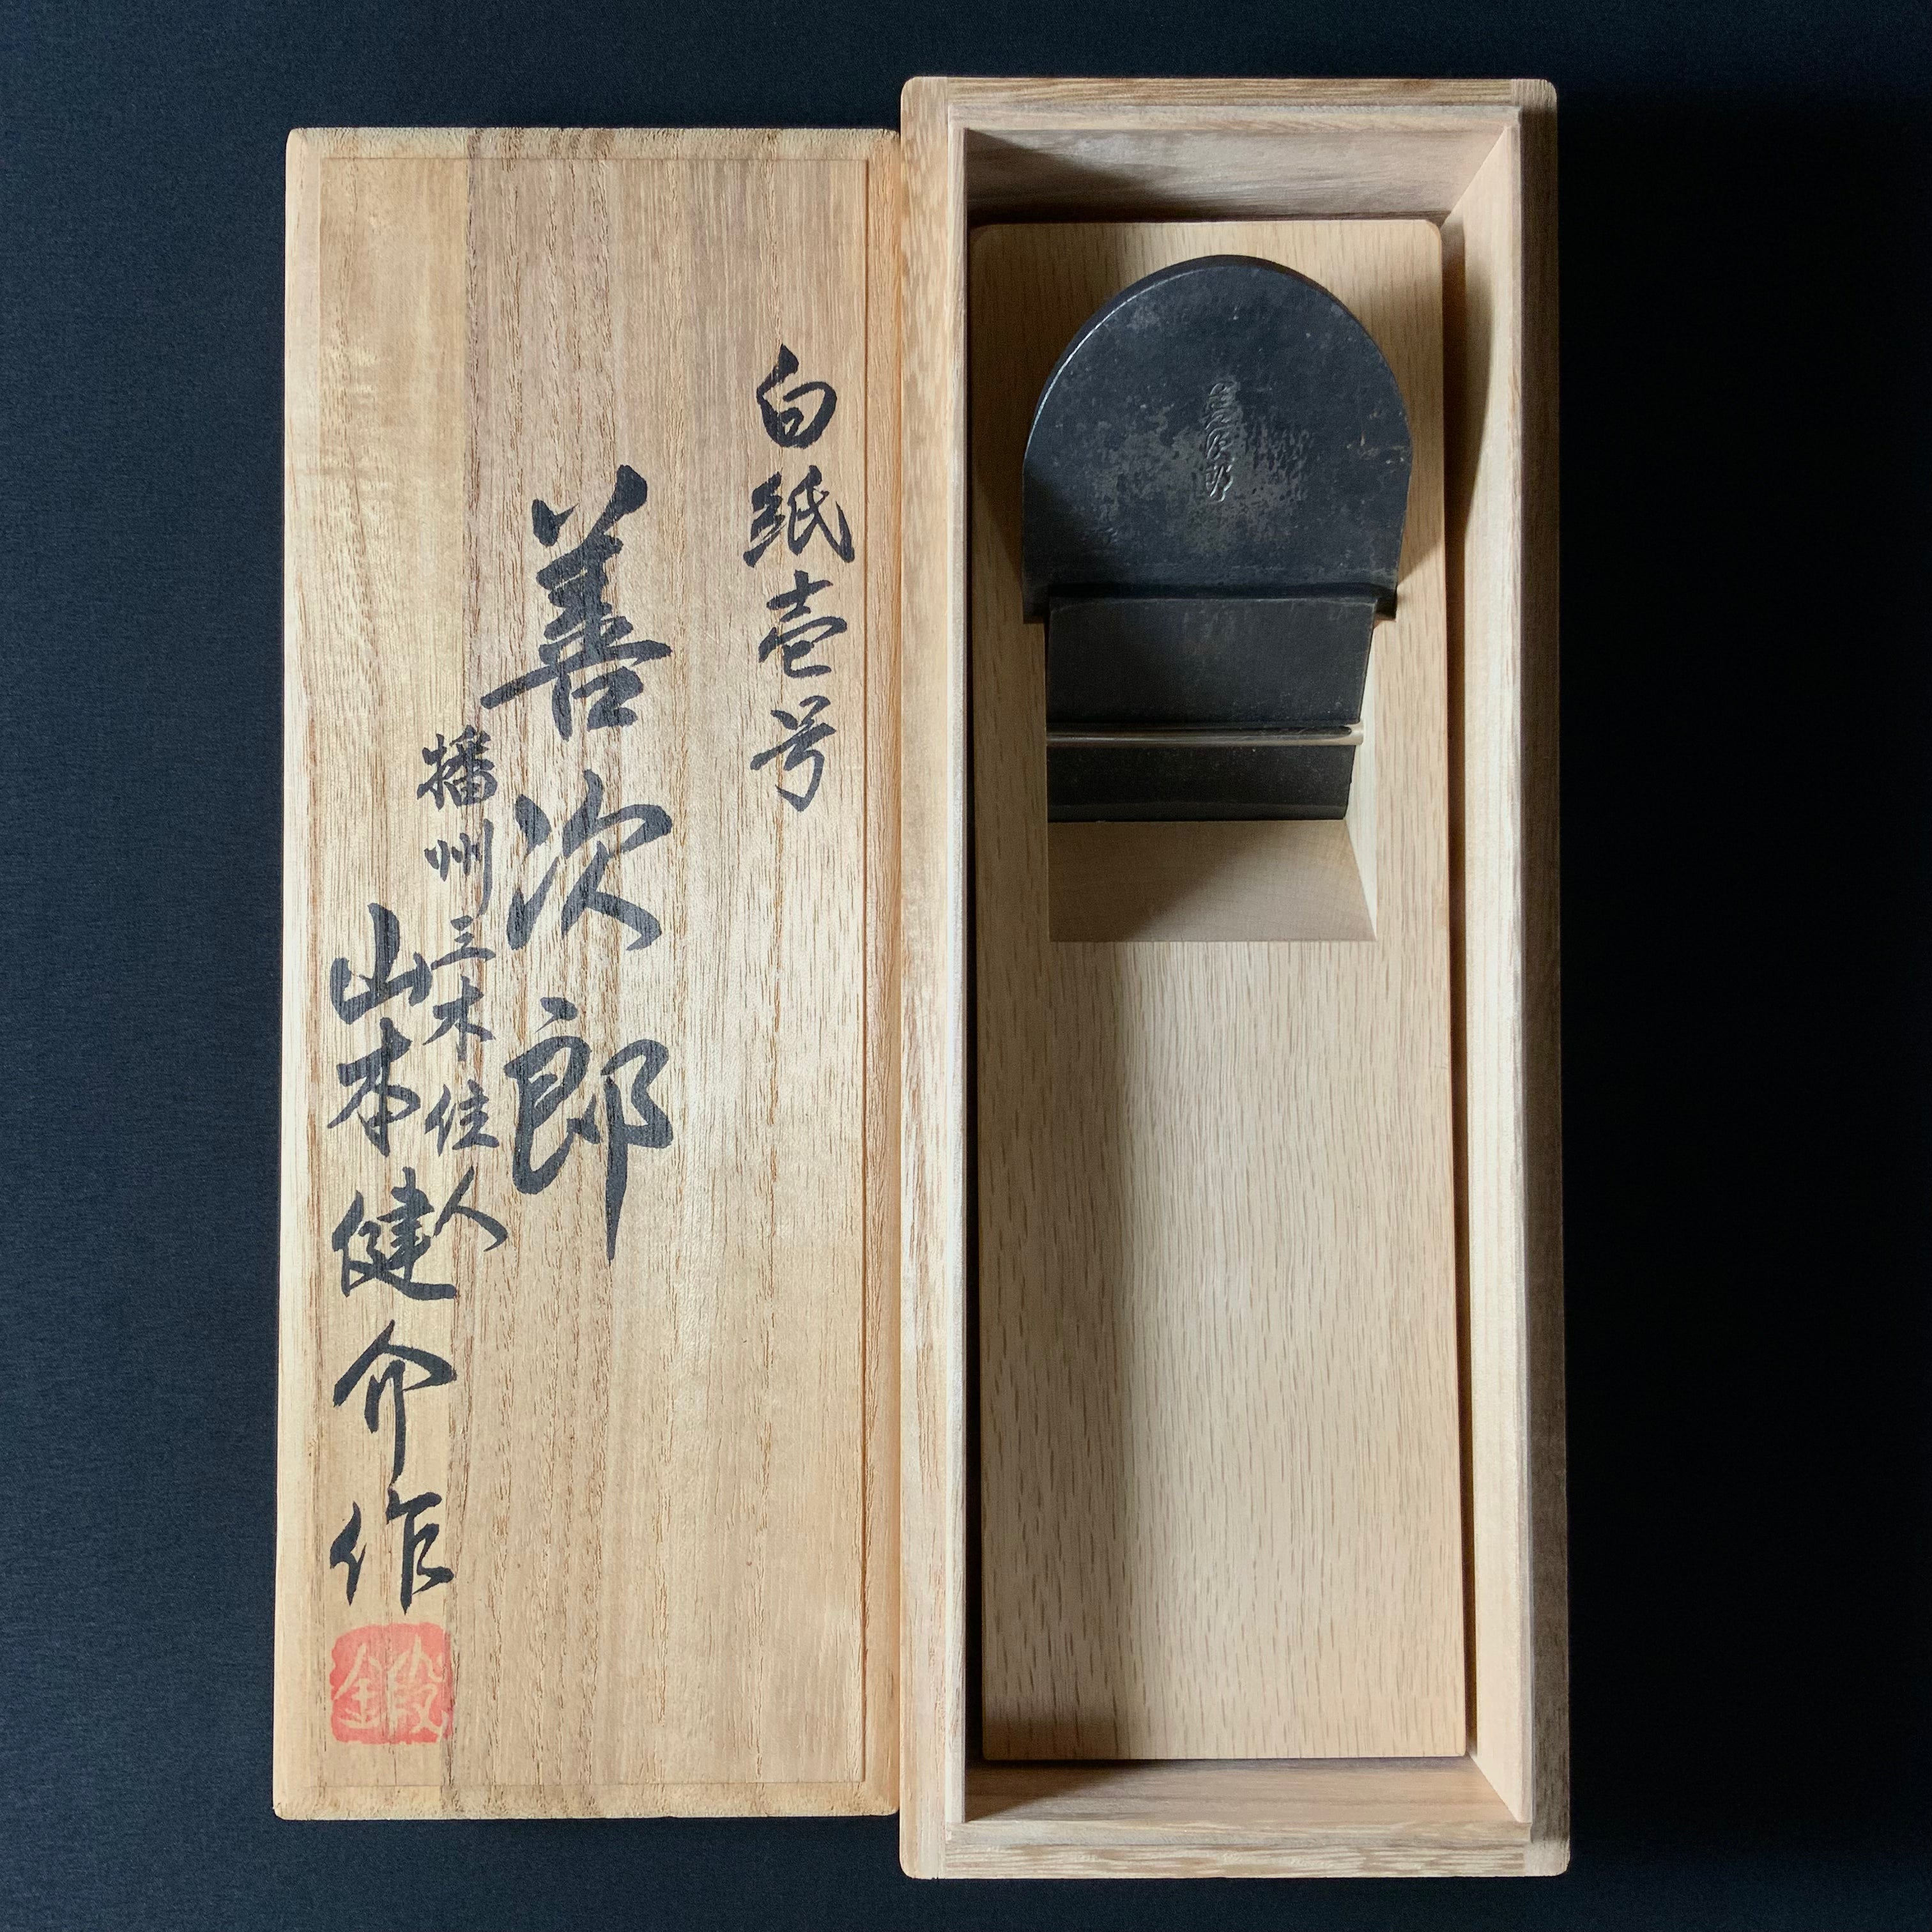 白紙壱号
善次郎
播州三木住人
山本健介作
鍛
善次郎